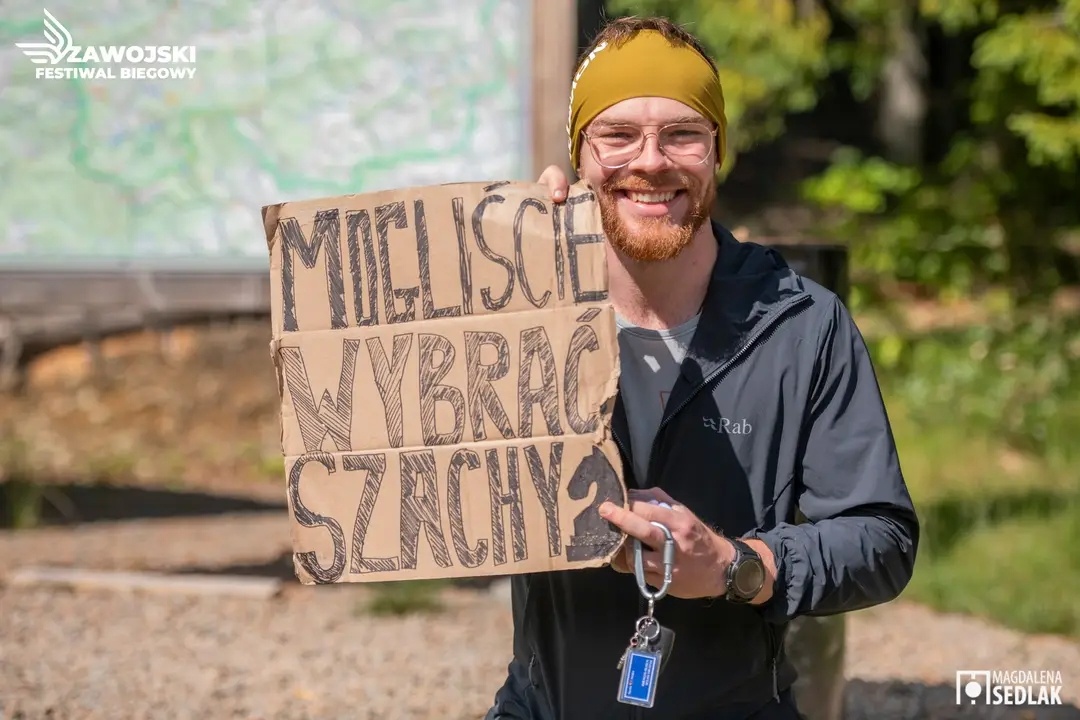 ZAWOJSKI
FESTIWAL BIEGOWY
MOGLIŚCIE
WYBRAĆ
SZACHY
Rab
MAGDALENA
SEDLAK